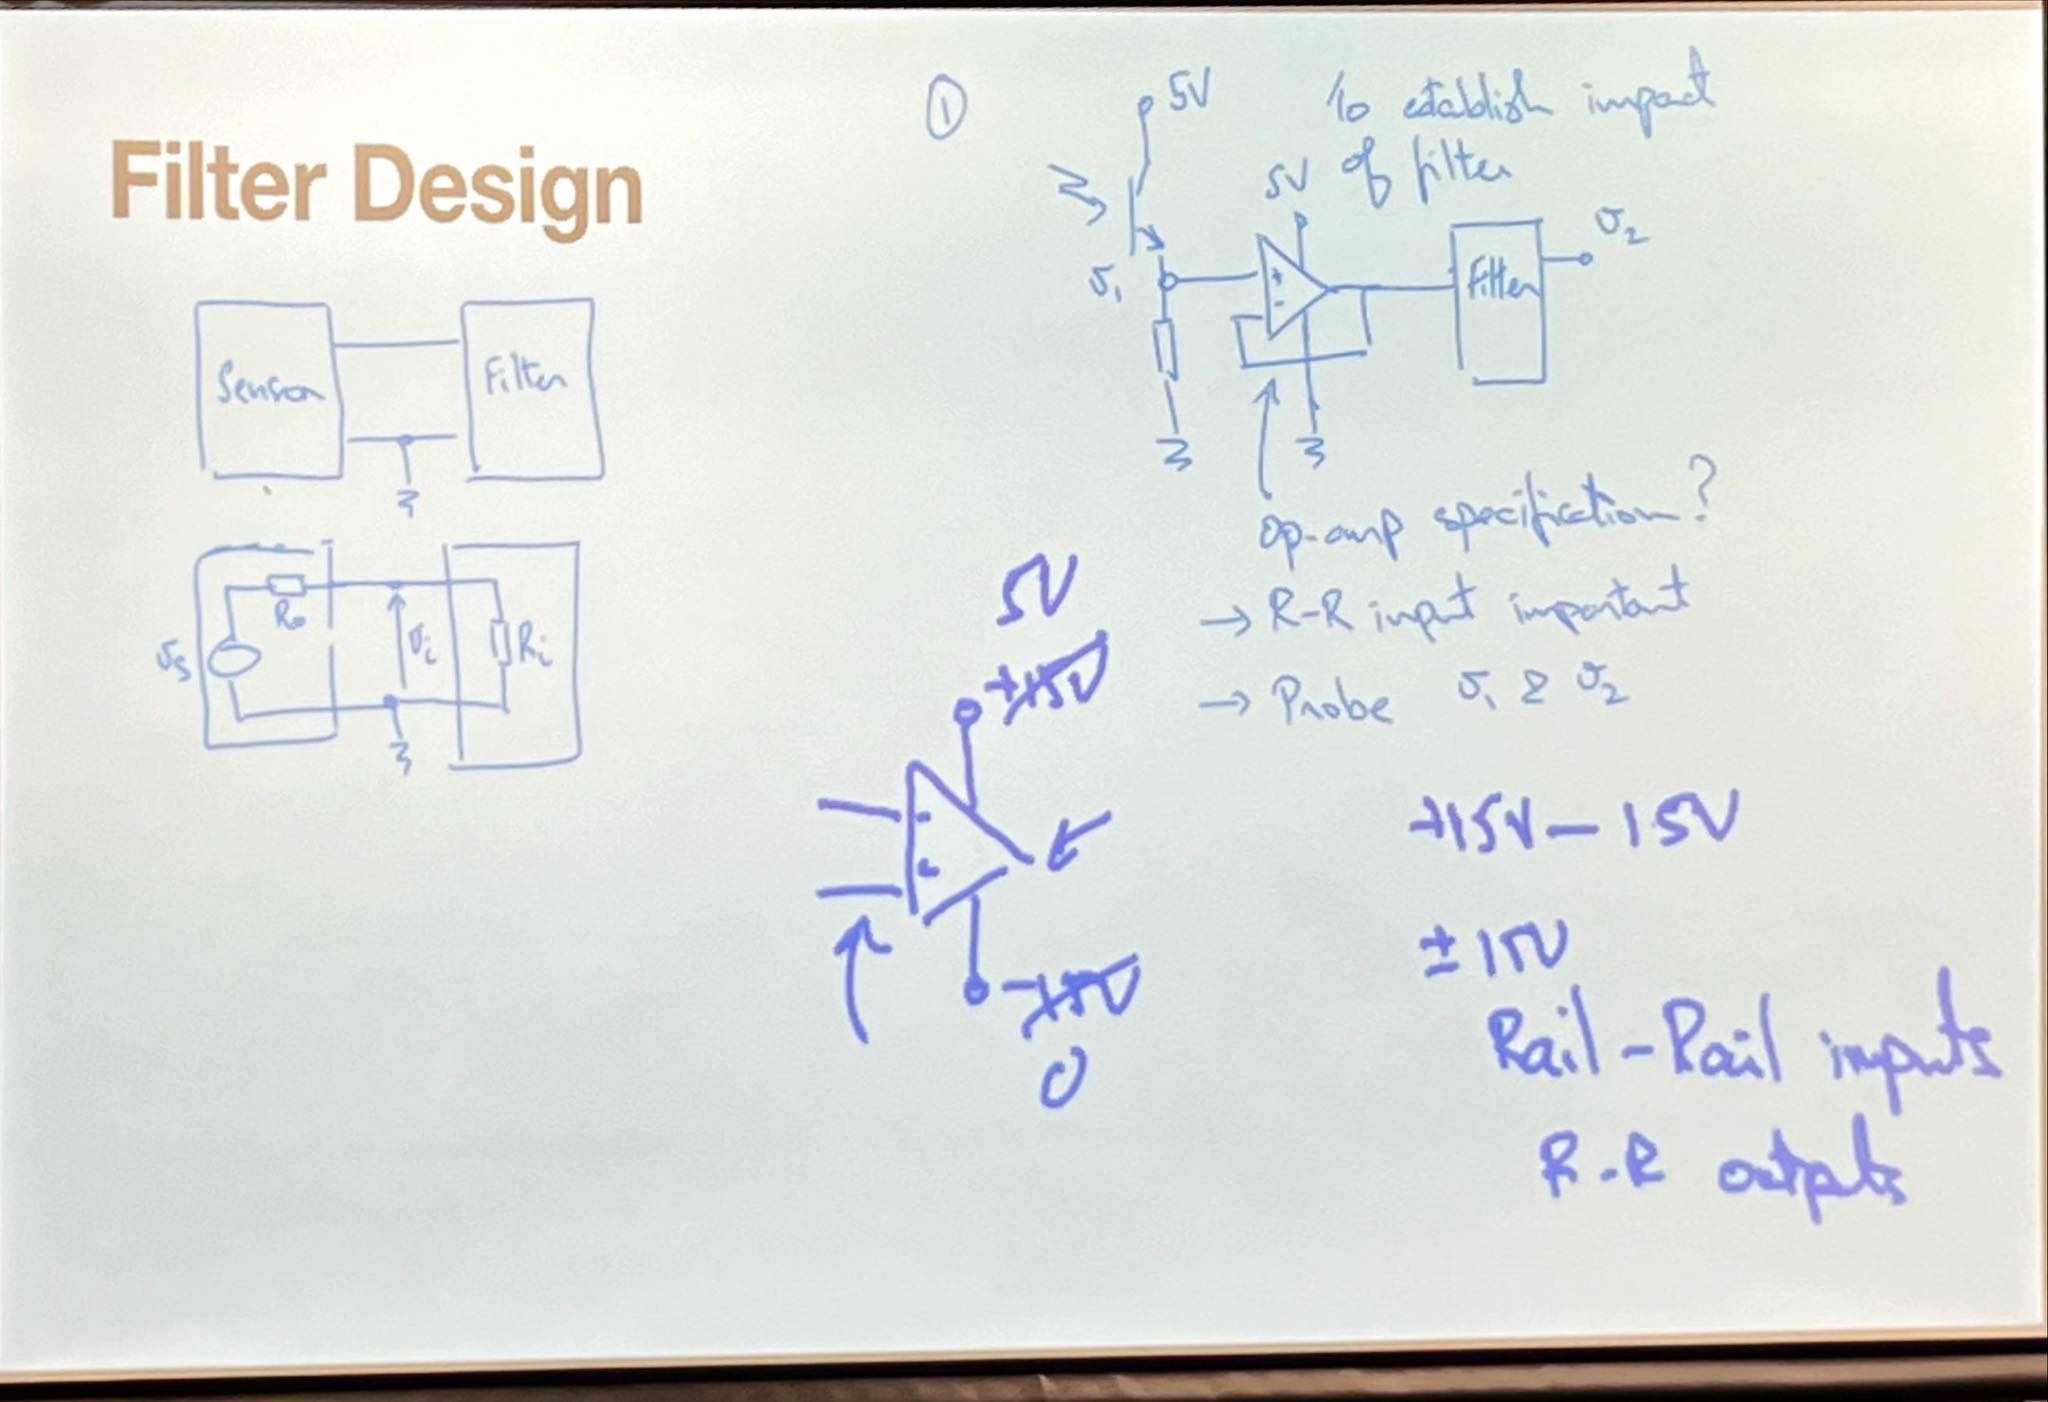 Filter Design
Sensor
Filter
vs
Ro
vi
Ri
①
5V
To establish impact
of filter
5V
v1
+
-
Filter
v2
Op-amp specification?
→ R-R input important
→ Probe v1 & v2
5V
+15V
-
+
-15V
0
+15V - 15V
± 15V
Rail - Rail inputs
R-R outputs